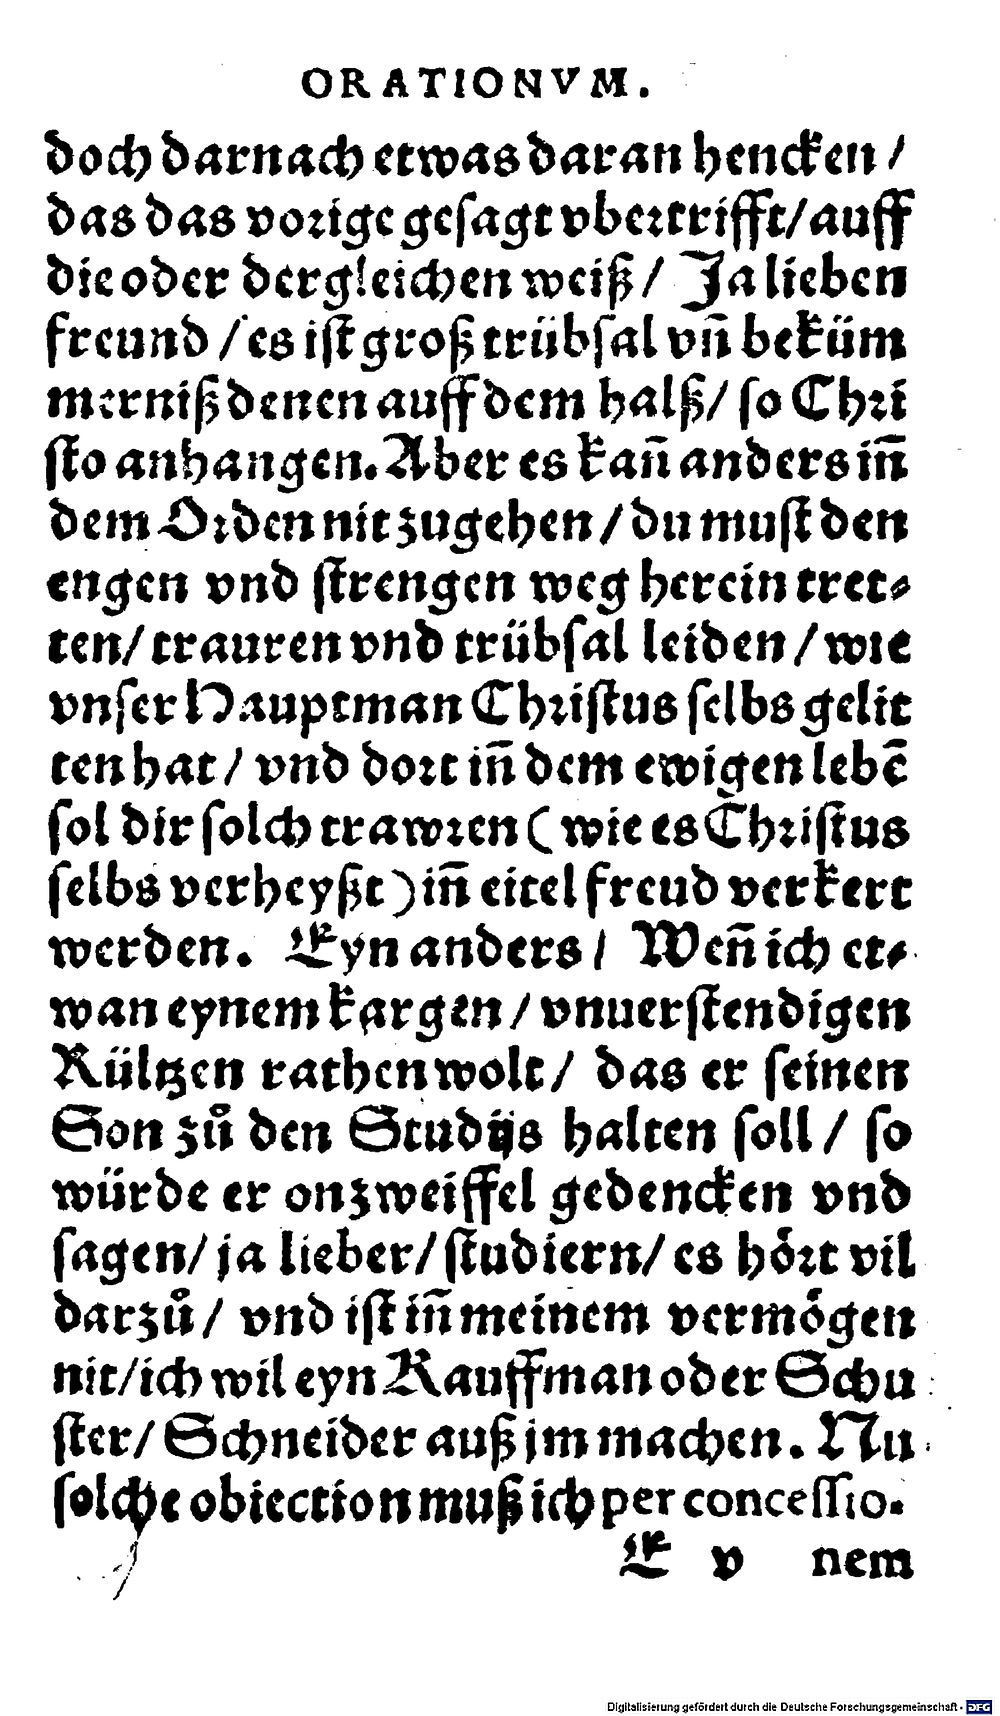 ORATIONVM.
doch darnach etwas daran hencken /
das das vorige gesagt vbertrifft/ auff
die oder dergleichen weiß / Ja lieben
freund / es ist groß trübsal vñ beküm
merniß denen auff dem halß/ so Chri
sto anhangen. Aber es kañ anders iñ
dem Orden nit zugehen / du must den
engen vnd strengen weg herein tret⸗
ten/ trauren vnd trübsal leiden / wie
vnser Hauptman Christus selbs gelit
ten hat / vnd dort iñ dem ewigen lebē
sol dir solch trawren ( wie es Christus
selbs verheyßt ) iñ eitel freud verkert
werden. Eyn anders / Weñ ich et⸗
wan eynem kargen / vnuerstendigen
Rültzen rathen wolt / das er seinen
Son zů den Studijs halten soll / so
würde er onzweiffel gedencken vnd
sagen/ ja lieber/ studiern/ es hoͤrt vil
darzů / vnd ist iñ meinem vermoͤgen
nit/ ich wil eyn Kauffman oder Schu
ster/ Schneider auß jm machen. Nu
solche obiection muß ich per concessio⸗
E v nem
Digitalisierung gefördert durch die Deutsche Forschungsgemeinschaft - DFG